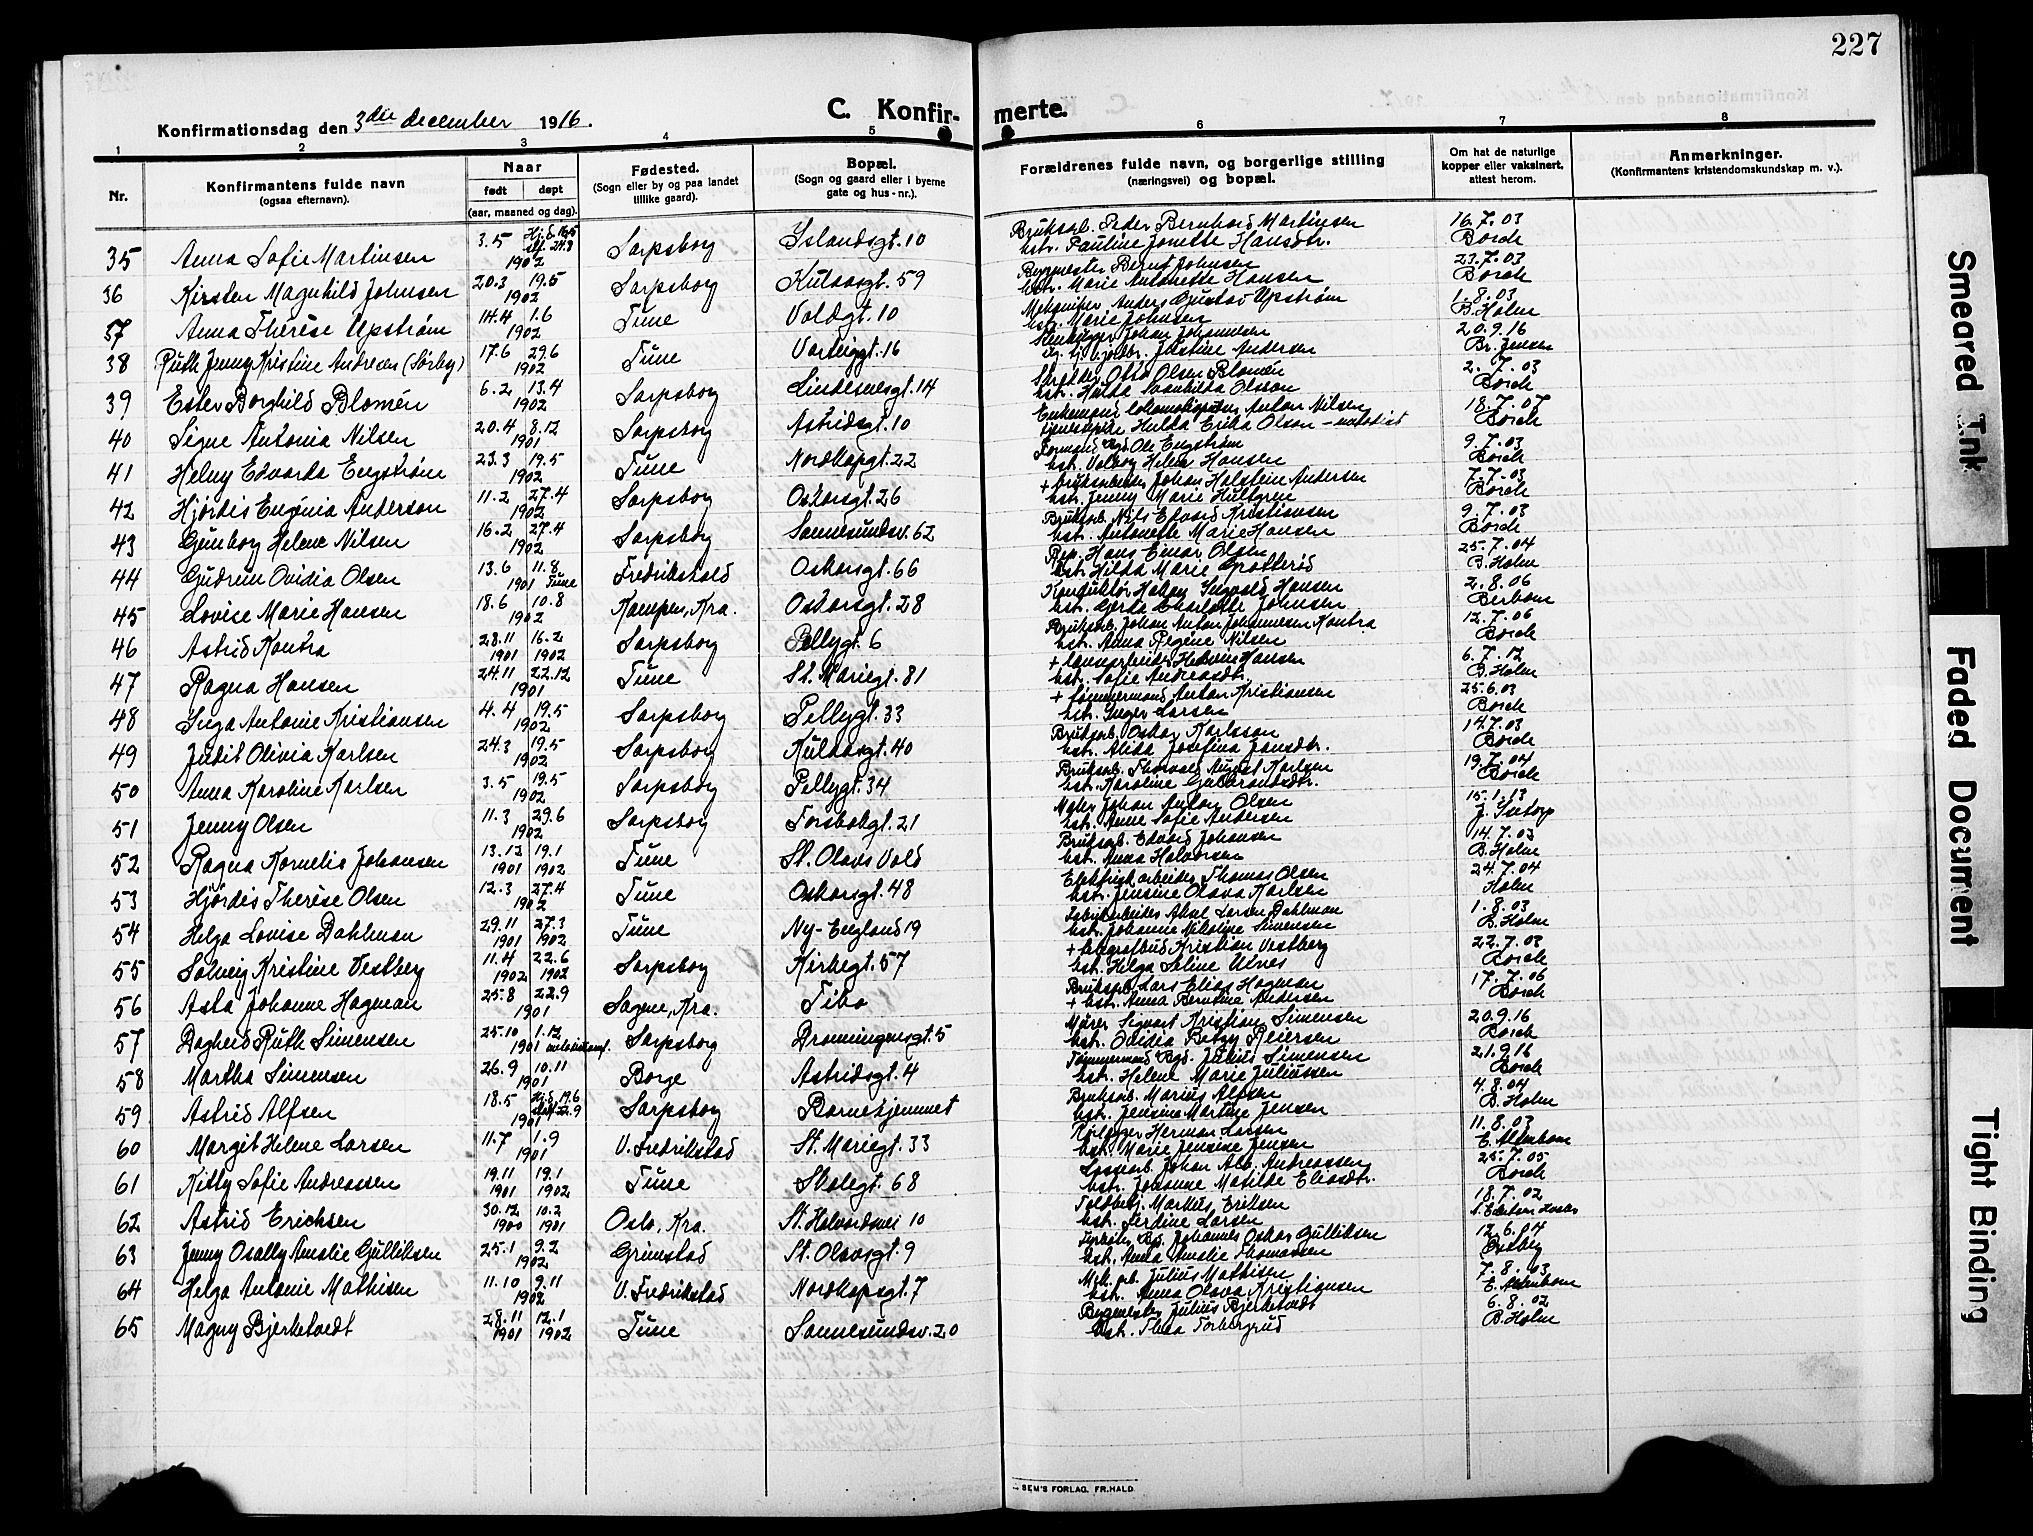 227
Konfirmationsdag den 3die december 1916.
C. Konfirmerte.
1 2 3 4 5 6 7 8
Nr.
Konfirmantens fulde navn (ogsaa efternavn).
Naar født døpt (aar, maaned og dag).
Fødested. (Sogn eller by og paa landet tillike gaard).
Bopæl. (Sogn og gaard eller i byerne gate og hus-nr.).
Forældrenes fulde navn, og borgerlige stilling (næringsvei) og bopæl.
Om hat de naturlige kopper eller vaksinert, attest herom.
Anmerkninger. (Konfirmantens kristendomskundskap m. v.).
35 Anna Sofie Martinsen 3.5 1902 Sarpsborg Islandsgt. 10 Bruksarb. Peder Bernhard Martinsen hstr. Pauline Jonette Hansdtr. 16.7.03 Borch
36 Kirsten Magnhild Johnsen 20.3 19.5 1902 Sarpsborg Kulaasgt. 59 Bernt Johnsen hstr. Marie Antonette Hansen 23.7.03 Borch
57 Anna Therese Upstrøm 14.4 1.6 1902 Tune Voldgt. 10 Mekaniker Anders Gustav Upstrøm hstr. Marie Johnsen 1.8.03 B. Holm
38 Ruth Jenny Kristine Andresen (Sørby) 17.6 29.6 1902 Tune Varteiggt. 16 Johan Johannesen Justine Andersen 20.9.16 Br. Jensen
39 Ester Borghild Blomén 6.2 13.4 1902 Sarpsborg Lindesnesgt. 14 Skredder Otto Olsen Blomén hstr. Hulda Olsson 2.7.03 Borch
40 Signe Antonia Nilsen 20.4 8.12 1901 Sarpsborg Astridsgt. 10 Enkemand Anton Nilsen Hulda Erika Olson - metodist 18.7.07 Borch
41 Helny Edvarda Engstrøm 23.3 19.5 1902 Tune Nordkapgt. 22 Formand Ole Engstrøm hstr. Valborg Helene Hansen 9.7.03 Borch
42 Hjørdis Eugenia Anderson 11.2 27.4 1902 Sarpsborg Oskarsgt. 26 + bruksarbeider Johan Halstein Andersen hstr. Jenny Marie Hultgren 7.7.03 Borch
43 Gunborg Helene Nilsen 16.2 27.4 1902 Sarpsborg Sannesundsv. 62 Bruksarb. Nils Edvard Kristiansen hstr. Antonette Marie Hansen 9.7.03 Borch
44 Gudrun Ovidia Olsen 13.6 11.8 1901 Tune Fredrikshald Oskarsgt. 66 Rep. Hans Einar Olsen hstr. Hilda Marie Grøtterød 25.7.04 B. Holm
45 Lovise Marie Hansen 18.6 10.8 1902 Kampen, Kra. Oskarsgt. 28 Konduktør Hansen hstr. Gerda Charlotte Johnsen 2.8.06 Berbom
46 Astrid Kontra 28.11 1901 16.2 1902 Sarpsborg Pellygt. 6 Bruksarb. Johan Anton Johannesen Kontra hstr. Anna Regine Nilsen 12.7.06 Borch
47 Ragna Hansen 24.11 22.12 1901 Tune St. Mariegt. 81 Hansen hstr. Sofie Andreasdtr. 6.7.12 B. Holm
48 Inga Antonie Kristiansen 4.4 19.5 1902 Sarpsborg Pellygt. 33 + tømmermand Anton Kristiansen hstr. Inger Larsen 25.6.03 Borch
49 Judit Olivia Karlsen 24.3 19.5 1902 Sarpsborg Kulaasgt. 40 Bruksarb. Oskar Karlsson hstr. Alida Josefina Jansdtr. 14.7.03 Borch
50 Anna Karoline Karlsen 3.5 19.5 1902 Sarpsborg Pellygt. 34 Bruksarb. Thorvald August Karlsen hstr. Karoline Gulbrandsdtr. 19.7.04 Borch
51 Jenny Olsen 11.3 29.6 1902 Sarpsborg Torsbekgt. 21 Maler Johan Anton Olsen hstr. Anne Sofie Andersen 15.1.13
52 Ragna Kornelia Johansen 13.12 1901 19.1 1902 Tune St. Olavs Vold Bruksarb. Edvard Johansen hstr. Anna Halvorsen 14.7.03 B. Holm
53 Hjørdis Therese Olsen 12.3 27.4 1902 Tune Oskarsgt. 48 Elektrisk arbeider Thomas Olsen hstr. Jensine Olava Karlsen 24.7.04 Holm
54 Helga Lovise Dahlman 29.11 1901 27.3 1902 Tune Ny-England 19 Fabrikarbeider Aksel Larsen Dahlman hstr. Johanne Nikoline Simensen 1.8.03 B. Holm
55 Solveig Kristine Vestberg 11.4 1902 22.6 1902 Sarpsborg Kirkegt. 57 + telegrafbud Kristian Vestberg hstr. Helga Seline Ulnes 22.7.03 Borch
56 Asta Johanne Hagman 25.8 22.9 1901 Sagene, Kra. Tibo Bruksarb. Lars Elias Hagman + hstr. Anna Berntine Andersen 17.7.06 Borch
57 Dagheid Ruth Simensen 25.10 1.12 1901 Sarpsborg Dronningensgt. 5 Murer Sigvart Kristian Simensen hstr. Ovidia Betzy Reiersen 20.9.16 Borch
58 Martha Simensen 26.9 10.11 1901 Borge Astridsgt. 4 Tømmermand Bgd. Julius Simensen hstr. Helene Marie Juliussen 21.9.16 Borch
59 Astrid Alfsen 18.5 1901 Sarpsborg Barnehjemmet Bruksarb. Marius Alfsen hstr. Jensine Martine Jensen 4.8.04 B. Holm
60 Margit Helene Larsen 11.7 1.9 1901 V. Fredrikstad St. Mariegt. 33 Herman Larsen hstr. Marie Jensine Jensen 11.8.03 E. Almbom
61 Kitty Sofie Andreassen 19.11 1901 19.1 1902 Tune Skolegt. 68 Lossearb. Johan Alb. Andreassen hstr. Johanne Matilde Eliasdtr. 25.7.05 Borch
62 Astrid Erichsen 30.12 1900 10.2 1901 Oslo, Kra. St. Halvardsvei 10 Toldbetj. Markus Eriksen hstr. Ferdine Larsen 18.7.02
63 Jenny Osally Amalie Gulliksen 25.1 9.2 1902 Grimstad St. Olavsgt. 9 Fyrbøter Johannes Oskar Gulliksen hstr. Anna Amalie Thomassen 12.6.04 Østberg
64 Helga Antonie Mathisen 11.10 9.11 1902 V. Fredrikstad Nordkapsgt. 7 Mek. arb. Julius Mathisen hstr. Anna Olava Kristiansen 7.8.03 E. Almbom
65 Magny Bjerketvedt 28.11 1901 12.1 1902 Tune Sannesundsv. 20 Bygmester Julius Bjerketvedt hstr. Thea Torbergrud 6.8.02 B. Holm
SEM'S FORLAG, FR.HALD
Smeared Ink
Faded Document
Tight Binding